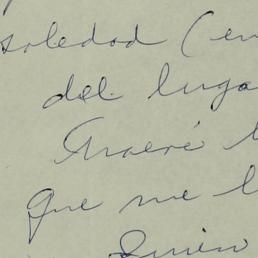 soledad (en
del luga
Traeré l
que me l
Quién